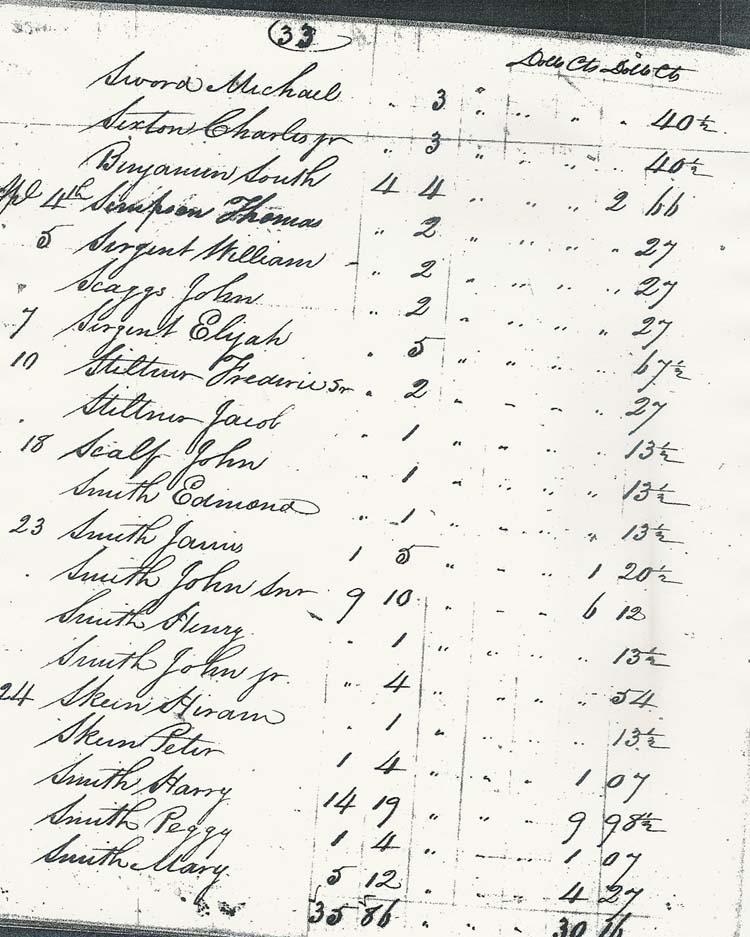 33
Dolls Cts Dolls Cts
Sword Michael " 3 " " " " 40½
Sexton Charles jr " 3 " " " " 40½
Benjamin South 4 4 " " " 2 66
4th Simpson Thomas " 2 " " " " 27
5 Sirgent William " 2 " " " " 27
Scaggs John " 2 " " " " 27
7 Sirgent Elijah " 5 " " " " 67½
10 Stiltner Frederic Sr " 2 " " " " 27
Stiltner Jacob " 1 " " " " 13½
18 Scalf John " 1 " " " " 13½
Smith Edmond " 1 " " " " 13½
23 Smith James 1 5 " " " 1 20½
Smith John Snr 9 10 " " " 6 12
Smith Henry " 1 " " " " 13½
Smith John jr. " 4 " " " " 54
24 Skeen Hiram " 1 " " " " 13½
Skeen Peter 1 4 " " " 1 07
Smith Harry 14 19 " " " 9 98½
Smith Peggy 1 4 " " " 1 07
Smith Mary 5 12 " " " 4 27
35 86 " " " 30 16